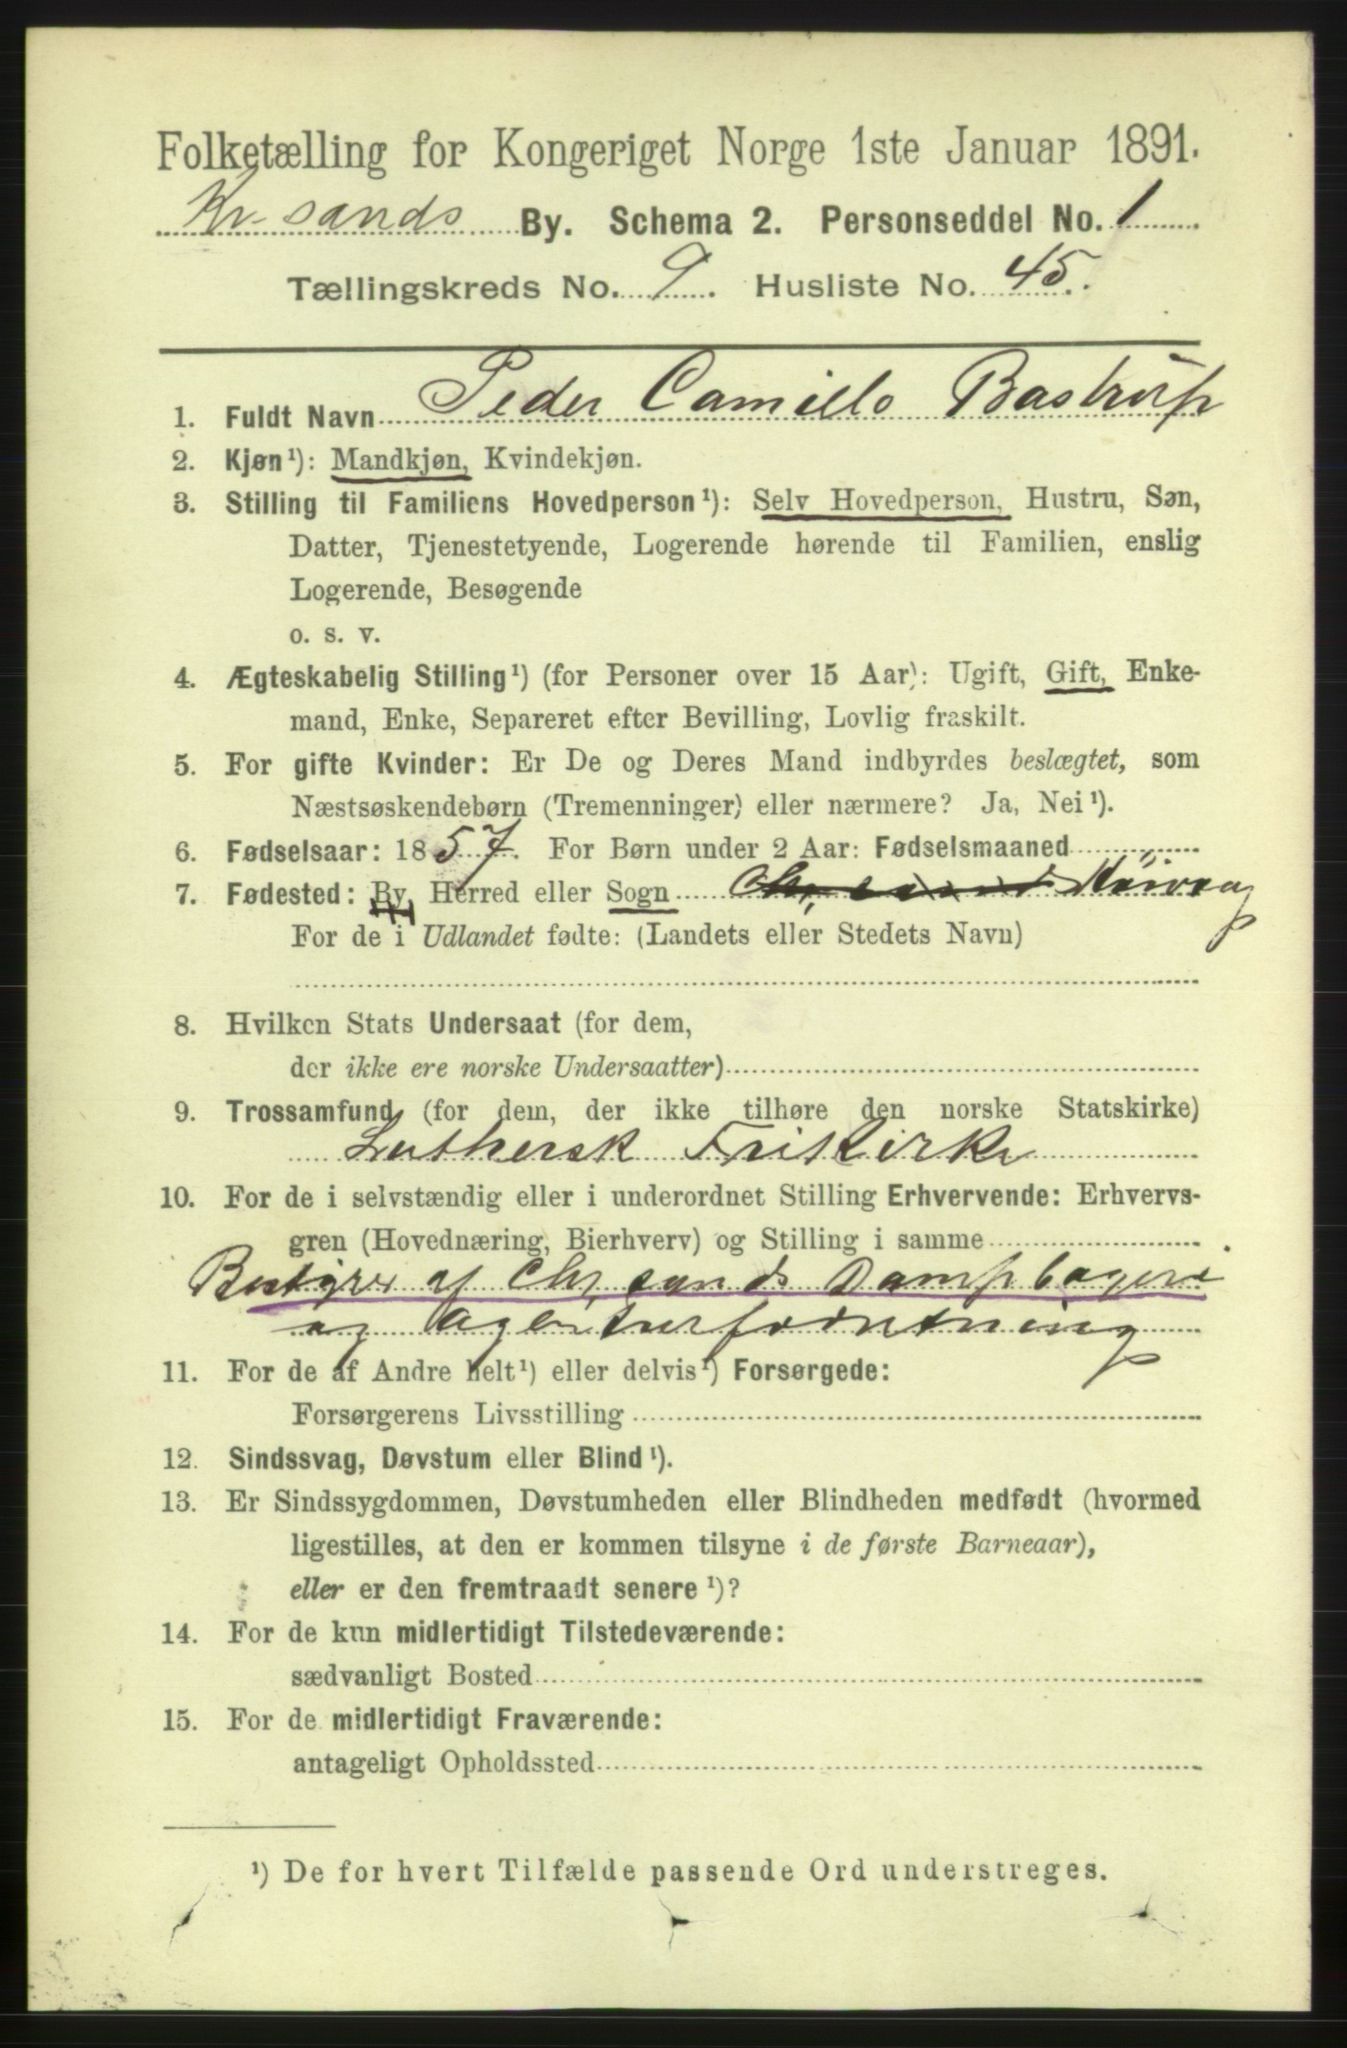 Folketælling for Kongeriget Norge 1ste Januar 1891.
Kr.sands By. Schema 2. Personseddel No. 1
Tællingskreds No. 9. Husliste No. 45.
1. Fuldt Navn Peder Camillo Bastrup
2. Kjøn¹): Mandkjøn, Kvindekjøn.
3. Stilling til Familiens Hovedperson¹): Selv Hovedperson, Hustru, Søn,
Datter, Tjenestetyende, Logerende hørende til Familien, enslig
Logerende, Besøgende
o. s. v.
4. Ægteskabelig Stilling¹) (for Personer over 15 Aar): Ugift, Gift, Enke-
mand, Enke, Separeret efter Bevilling, Lovlig fraskilt.
5. For gifte Kvinder: Er De og Deres Mand indbyrdes beslægtet, som
Næstsøskendebørn (Tremenninger) eller nærmere? Ja, Nei¹).
6. Fødselsaar: 1857. For Børn under 2 Aar: Fødselsmaaned
7. Fødested: By, Herred eller Sogn Chr.sand Höivaag
For de i Udlandet fødte: (Landets eller Stedets Navn)
8. Hvilken Stats Undersaat (for dem,
der ikke ere norske Undersaatter)
9. Trossamfund (for dem, der ikke tilhøre den norske Statskirke)
Luthersk Frikirke
10. For de i selvstændig eller i underordnet Stilling Erhvervende: Erhvervs-
gren (Hovednæring, Bierhverv) og Stilling i samme
Bestyrer af Chr.sands Dampbageri
og Agenturforretning
11. For de af Andre helt¹) eller delvis¹) Forsørgede:
Forsørgerens Livsstilling
12. Sindssvag, Døvstum eller Blind¹).
13. Er Sindssygdommen, Døvstumheden eller Blindheden medfødt (hvormed
ligestilles, at den er kommen tilsyne i de første Barneaar),
eller er den fremtraadt senere¹)?
14. For de kun midlertidigt Tilstedeværende:
sædvanligt Bosted
15. For de midlertidigt Fraværende:
antageligt Opholdssted
¹) De for hvert Tilfælde passende Ord understreges.